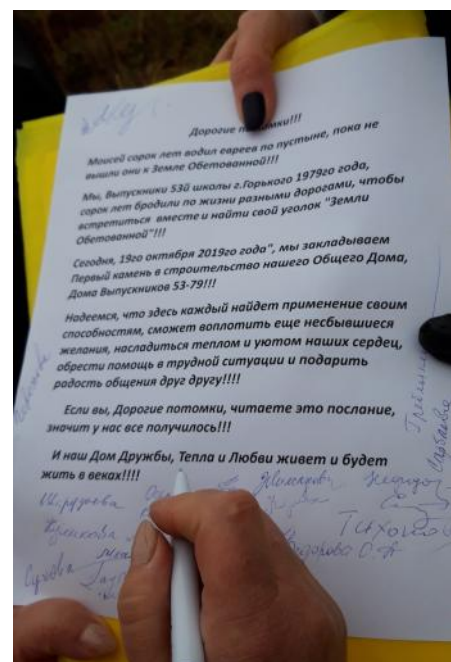 Дорогие потомки!!!
Моисей сорок лет водил евреев по пустыне, пока не
вышли они к Земле Обетованной!!!
Мы, Выпускники 53й школы г.Горького 1979го года,
сорок лет бродили по жизни разными дорогами, чтобы
встретиться вместе и найти свой уголок "Земли
Обетованной"!!!
Сегодня, 19го октября 2019го года", мы закладываем
Первый камень в строительство нашего Общего Дома,
Дома Выпускников 53-79!!!
Надеемся, что здесь каждый найдет применение своим
способностям, сможет воплотить еще несбывшиеся
желания, насладиться теплом и уютом наших сердец,
обрести помощь в трудной ситуации и подарить
радость общения друг другу!!!!
Если вы, Дорогие потомки, читаете это послание,
значит у нас все получилось!!!
И наш Дом Дружбы, Тепла и Любви живет и будет
жить в веках!!!!